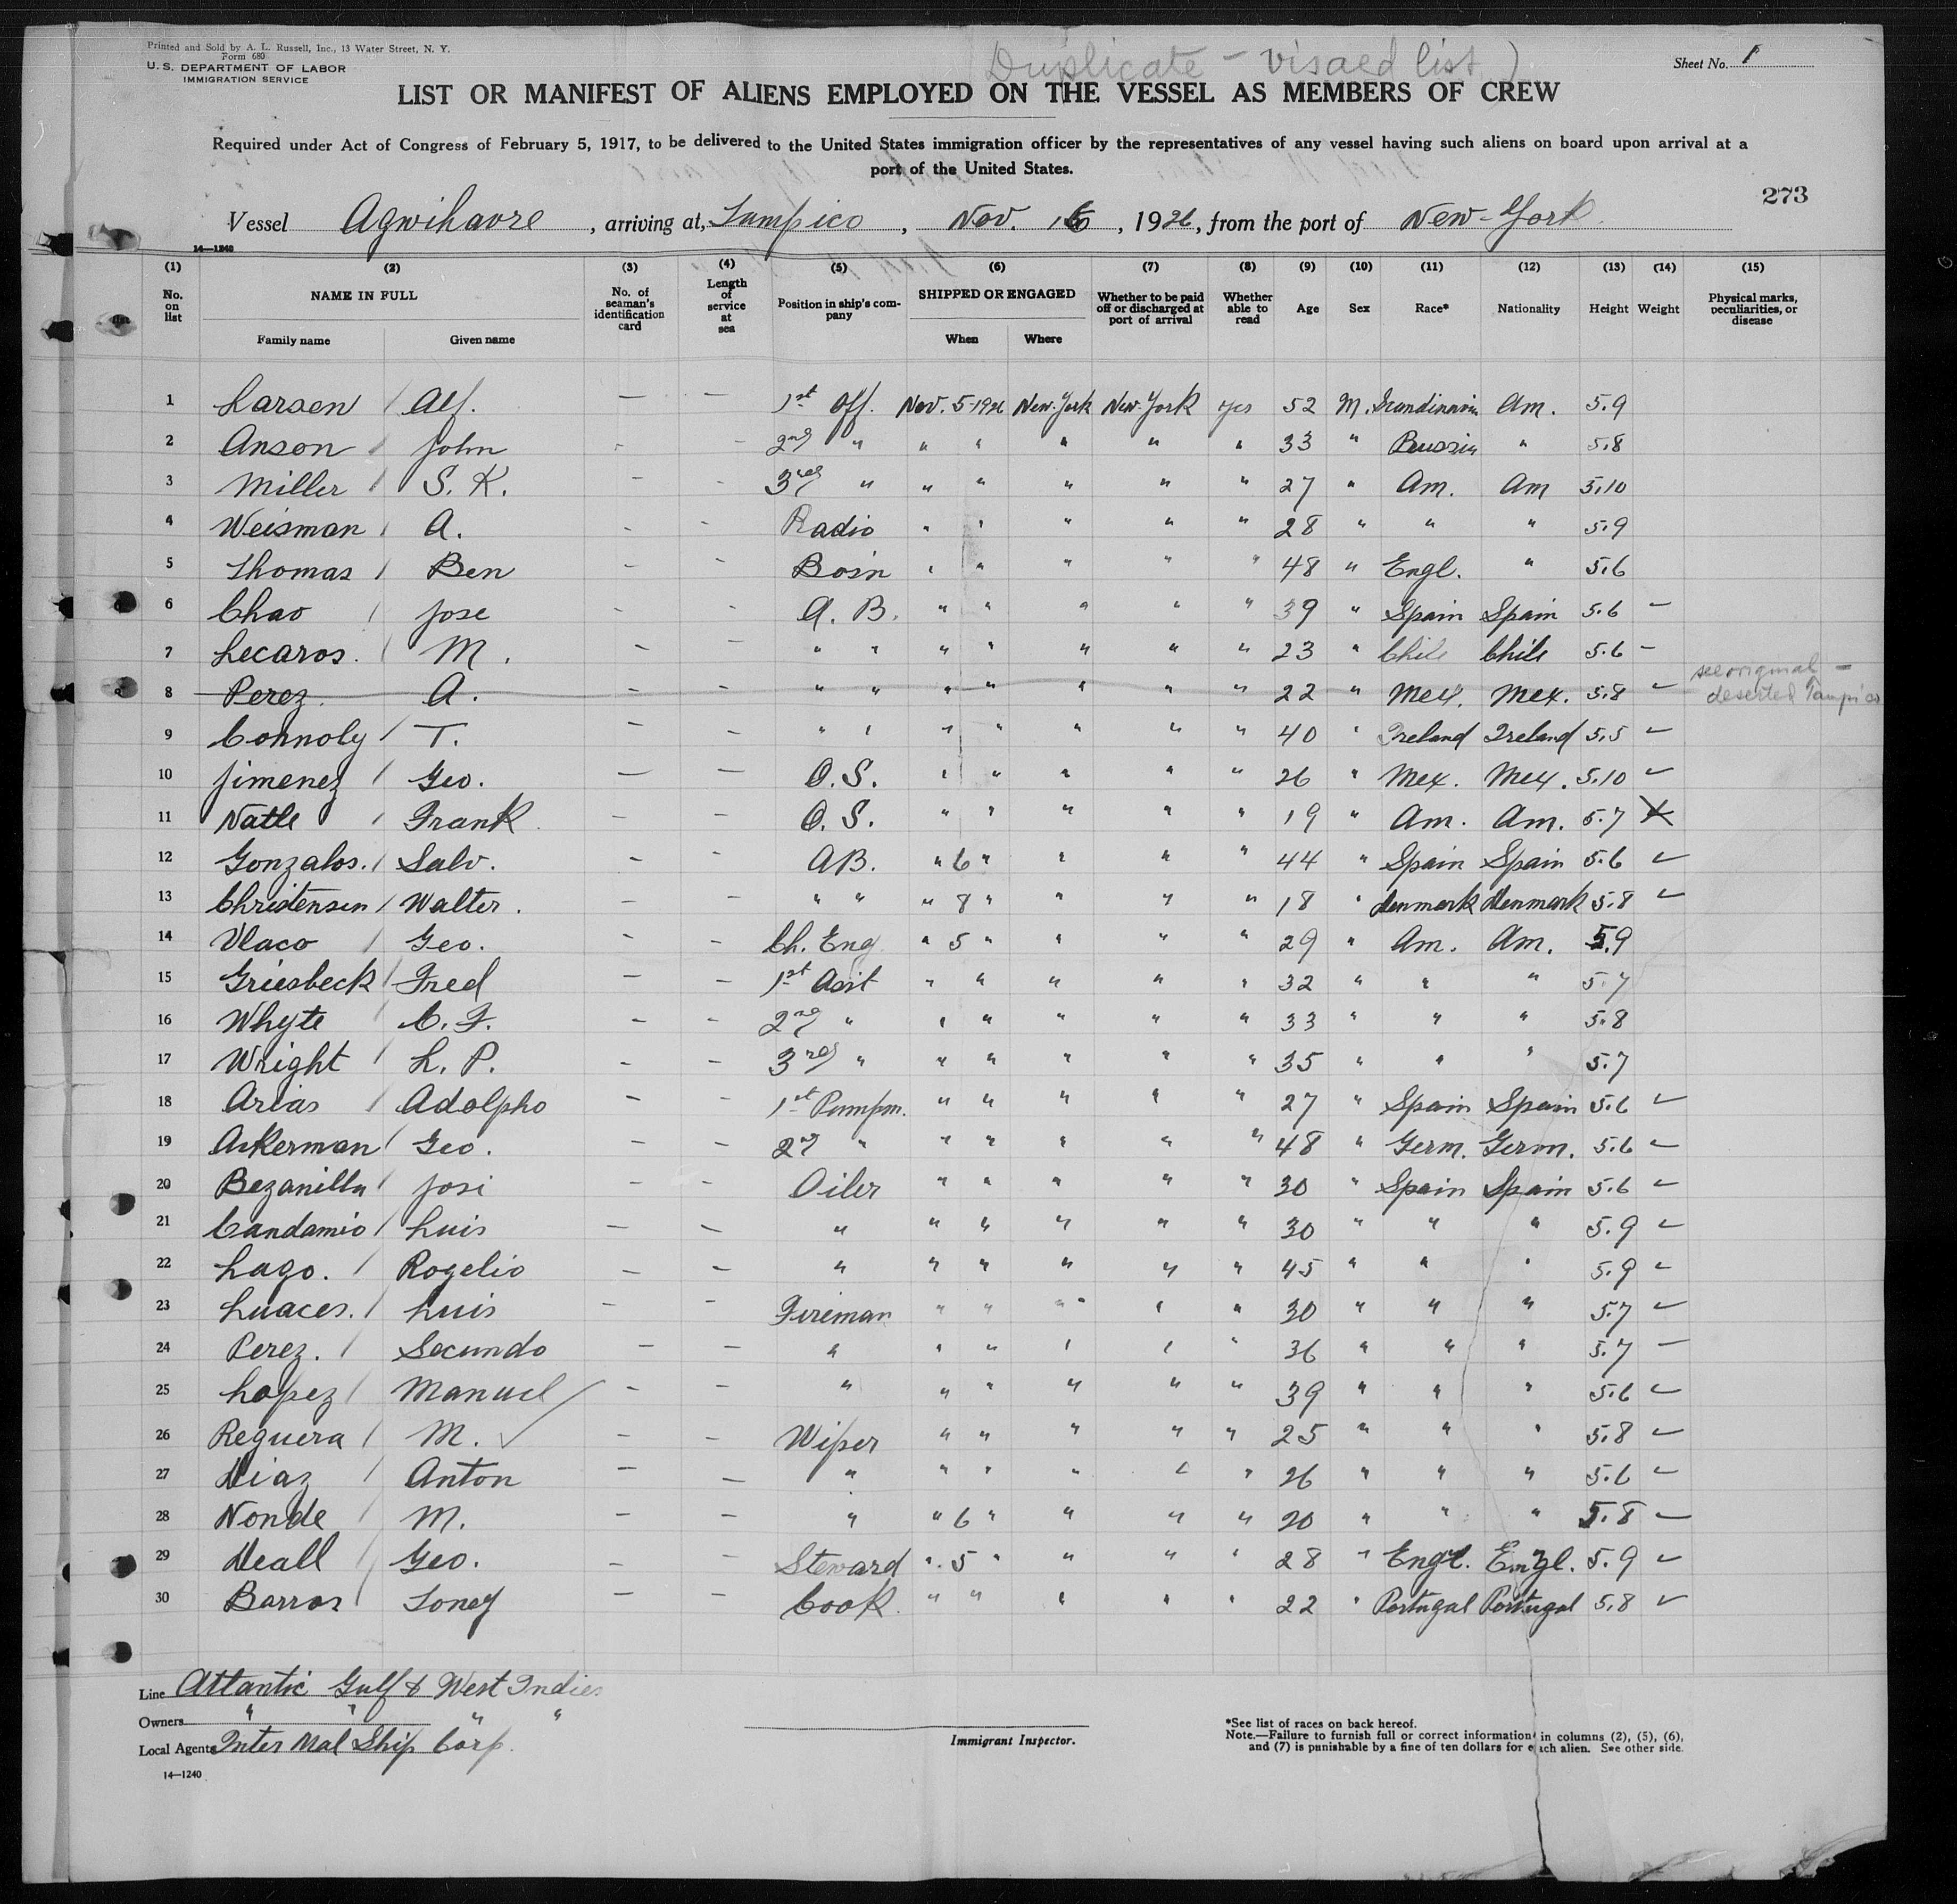 Printed and Sold by A. L. Russell, Inc., 13 Water Street, N. Y.
Form 680
U. S. DEPARTMENT OF LABOR
IMMIGRATION SERVICE
Duplicate - visaed list )
Sheet No. 1
LIST OR MANIFEST OF ALIENS EMPLOYED ON THE VESSEL AS MEMBERS OF CREW
Required under Act of Congress of February 5, 1917, to be delivered to the United States immigration officer by the representatives of any vessel having such aliens on board upon arrival at a
port of the United States.
273
Vessel Agwihavre, arriving at, Tampico, Nov. 16, 1926, from the port of New-York
14—1240
(1) (2) (3) (4) (5) (6) (7) (8) (9) (10) (11) (12) (13) (14) (15)
No. on list NAME IN FULL Family name Given name No. of seaman's identification card Length of service at sea Position in ship's company SHIPPED OR ENGAGED When Where Whether to be paid off or discharged at port of arrival Whether able to read Age Sex Race* Nationality Height Weight Physical marks, peculiarities, or disease
1 Larsen / Alf. — — 1st Off. Nov. 5-1926 New-York New-York yes 52 M. Scandinavia Am. 5.9
2 Anson / John - - 2nd " " " " " " 33 " Russia " 5.8
3 Miller / S. K. - - 3rd " " " " " " 27 " Am. Am 5.10
4 Weisman / A. - - Radio " " " " " 28 " " " 5.9
5 Thomas / Ben - - Bosn " " " " " 48 " Engl. " 5.6
6 Chao / Jose - - A. B. " " " " " 39 " Spain Spain 5.6 -
7 Lecaros. / M. - - " " " " " " " 23 " Chile Chile 5.6 -
8 Perez. A. - - " " " " " " " 22 " Mex. Mex. 5.8 - see original - deserted Tampico
9 Connoly / T. - - " " " " " " " 40 " Ireland Ireland 5.5 -
10 Jimenez / Geo. — — O.S. " " " " " 26 " Mex. Mex. 5.10 -
11 Natle / Frank - - O. S. " " " " " 19 " Am. Am. 5.7 x
12 Gonzalos. / Salv. - - AB. " 6 " " " " 44 " Spain Spain 5.6 -
13 Christensen / Walter. - - " " " 8 " " " " 18 " Denmark Denmark 5.8 -
14 Vlaco / Geo. - - Ch. Eng " 5 " " " " 29 " Am. Am. 5.9
15 Griesbeck / Fred - - 1st Asst " " " " " 32 " " " 5.7
16 Whyte / C. F. - - 2nd " " " " " " 33 " " " 5.8
17 Wright L. P. - - 3rd " " " " " " 35 " " " 5.7
18 Arias / Adolpho - - 1st Pumpm. " " " " " 27 " Spain Spain 5.6 -
19 Ackerman / Geo. - - 2nd " " " " " " 48 " Germ. Germ. 5.6 -
20 Bezanilla / Josi - - Oiler " " " " " 30 " Spain Spain 5.6 -
21 Candamio / Luis - - " " " " " " 30 " " " 5.9 -
22 Lago. / Rogelio - - " " " " " " 45 " " " 5.9 -
23 Luaces. / Luis - - Fireman " " " " " 30 " " " 5.7 -
24 Perez. / Secundo - - " " " " " " 36 " " " 5.7 -
25 Lopez / Manuel - - " " " " " " 39 " " " 5.6 -
26 Reguera / M. ✓ - - Wiper " " " " " 25 " " " 5.8 -
27 Diaz / Anton - - " " " " " " 26 " " " 5.6 -
28 Nonde / M. - - " " 6 " " " " 20 " " " 5.8 -
29 Deall / Geo. - - Steward " 5 " " " " 28 " Engl. Engl. 5.9 -
30 Barros / Toney - - Cook " " " " " 22 " Portugal Portugal 5.8 -
Line Atlantic Gulf & West Indies
Owners " " " "
Local Agents Inter Mal Ship Corp.
Immigrant Inspector.
*See list of races on back hereof.
Note.—Failure to furnish full or correct information in columns (2), (5), (6),
and (7) is punishable by a fine of ten dollars for each alien. See other side.
14—1240